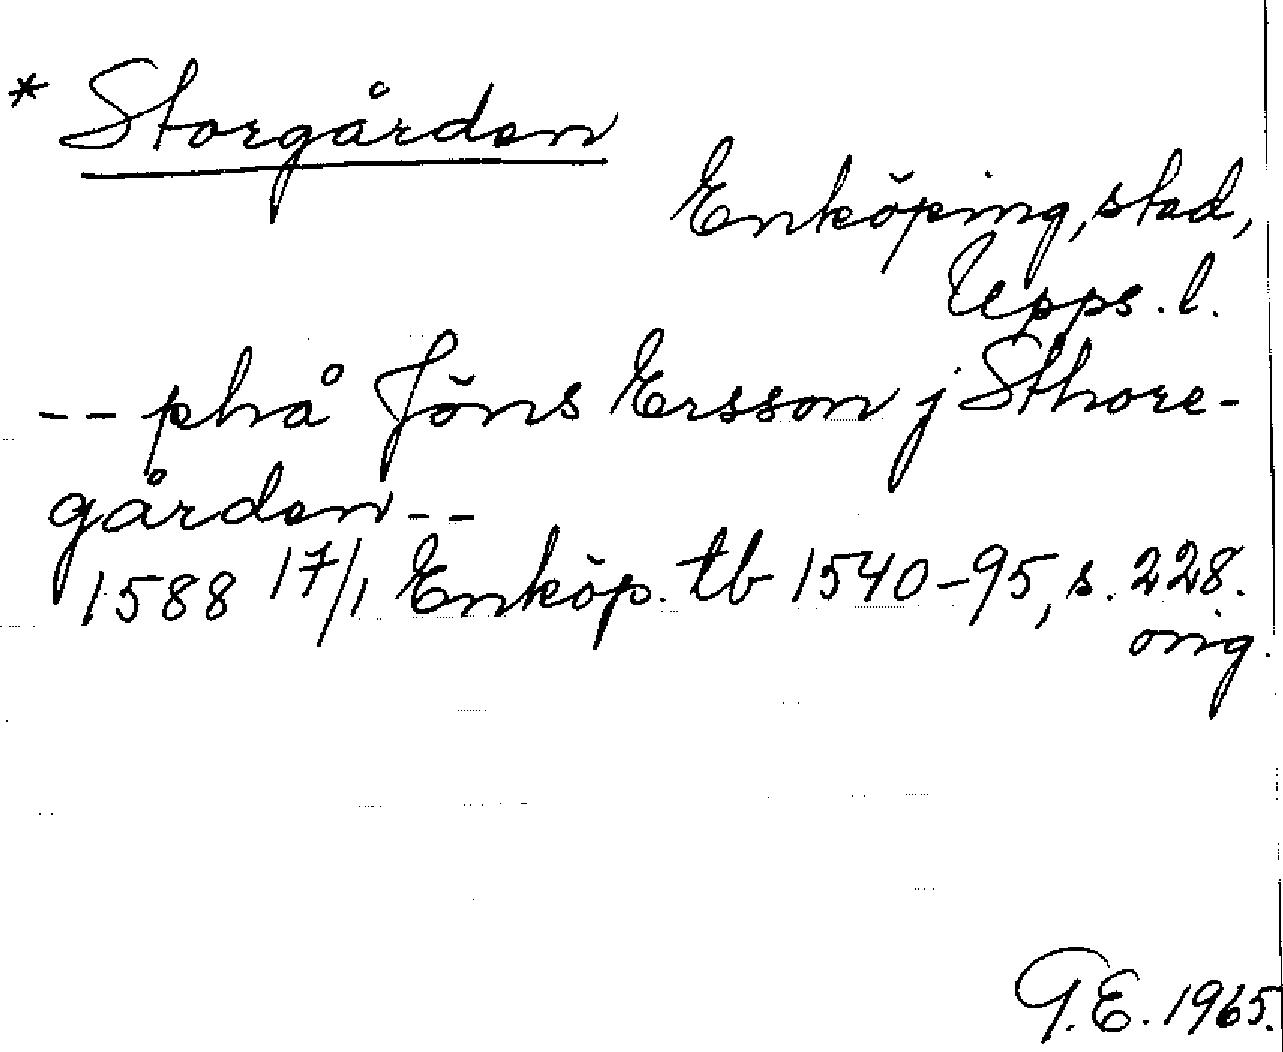 * Storgården
Enköping, stad,
Upps. l.
-- phå Jöns Ersson j Sthore-
gården --
1588 17/1 Enköp. tb 1540-95, s. 228.
orig.
G.E. 1965.